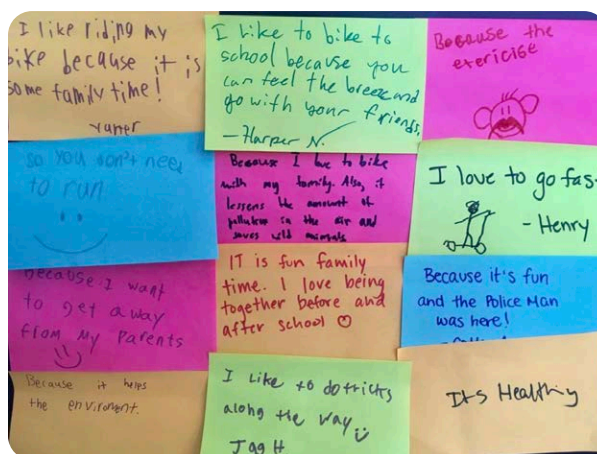 I like riding my
bike because it is
some family time!
I like to bike to
school because you
can feel the breeze and
go with your friends.
-Harper N.
Because the
exericise
so you don't need
to run
Because I love to bike
with my family. Also, it
lessens the amount of
pollution in the air and
saves wild animals
I love to go fas
- Henry
because I want
to get away
from my parents
IT is fun family
time. I love being
together before and
after school
Because it's fun
and the Police Man
was here!
Because it helps
the enviroment.
I like to do tricks
along the way
It's Healthy